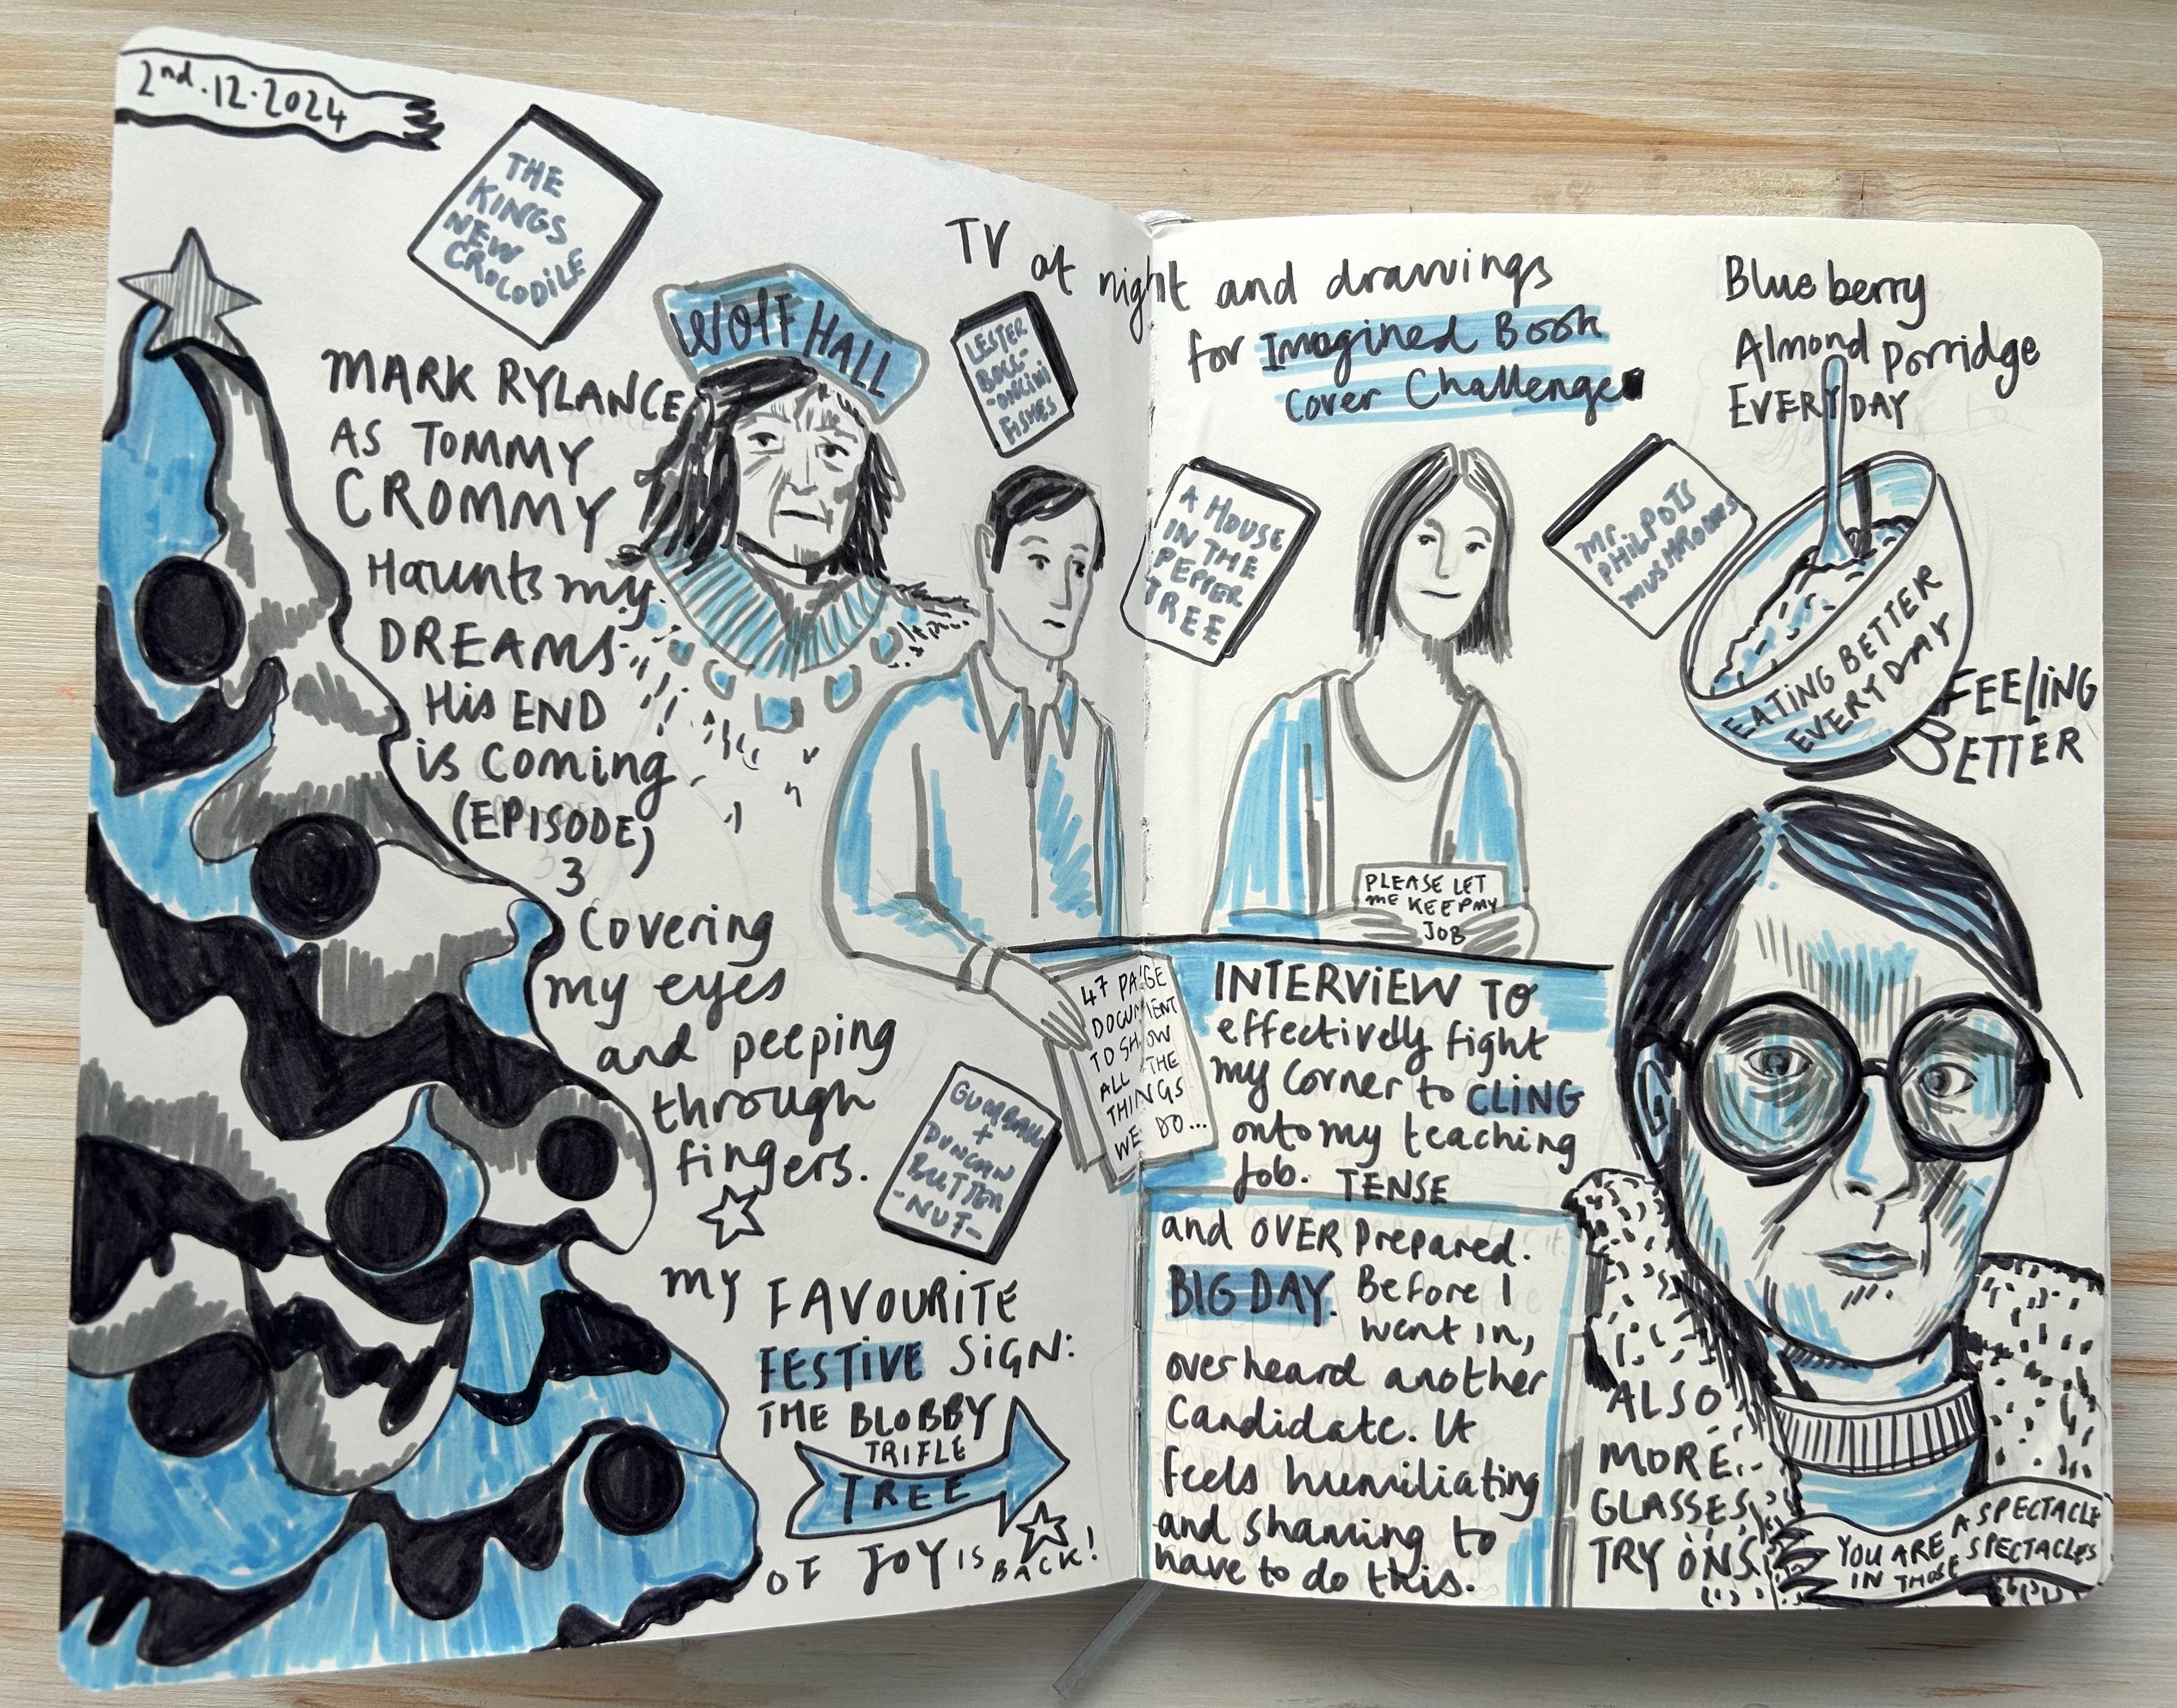 2nd.12.2024
THE
KINGS
NEW
CROCODILE
WOLF HALL
MARK RYLANCE
AS TOMMY
CROMMY
Haunts my
DREAMS
His END
is coming
(EPISODE)
3
Covering
my eyes
and peeping
through
fingers.
MY FAVOURITE
FESTIVE SIGN:
THE BLOBBY
TRIFLE
TREE
OF JOY IS BACK!
TV at night and drawings
for Imagined Book
Cover Challenge
LESTER
BOCC-
-ONCINI
FISHES
A HOUSE
IN THE
PEPPER
TREE
Mr.
PHILPOTS
MUSHROOMS
GUMBALL
+
DUNCAN
BUTTER
-NUT-
47 PAGE
DOCUMENT
TO SHOW
ALL THE
THINGS
WE DO...
PLEASE LET
ME KEEP MY
JOB
INTERVIEW TO
effectively fight
my corner to CLING
onto my teaching
job. TENSE
and OVER prepared.
BIG DAY. Before I
went in,
overheard another
candidate. It
feels humiliating
and shaming to
have to do this.
Blueberry
Almond Porridge
EVERYDAY
EATING BETTER
EVERYDAY
FEELING
BETTER
ALSO
MORE
GLASSES
TRY ONS.
YOU ARE A SPECTACLE
IN THOSE SPECTACLES